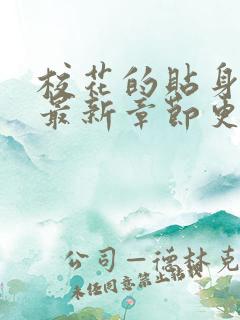 校花的贴身
最新章节更
公司—德林克
未经同意禁止转载